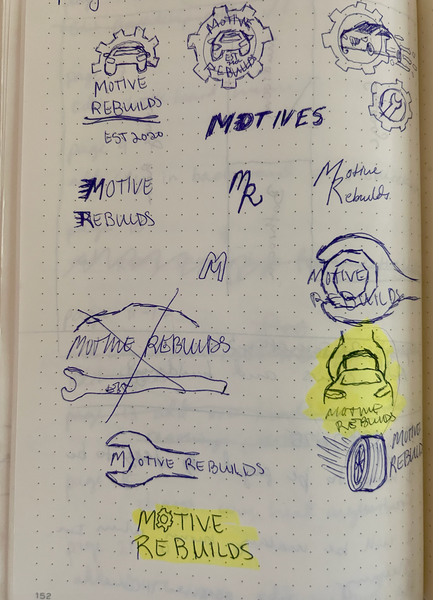 MOTIVE
REBUILDS
EST 2020
MOTIVE
EST
REBUILDS
MOTIVES
MOTIVE
REBUILDS
MR
Motive
Rebuilds
M
MOTIVE
REBUILDS
MOTIVE REBUILDS
MOTIVE
REBUILDS
MOTIVE REBUILDS
MOTIVE
REBUILD
MOTIVE
REBUILDS
152